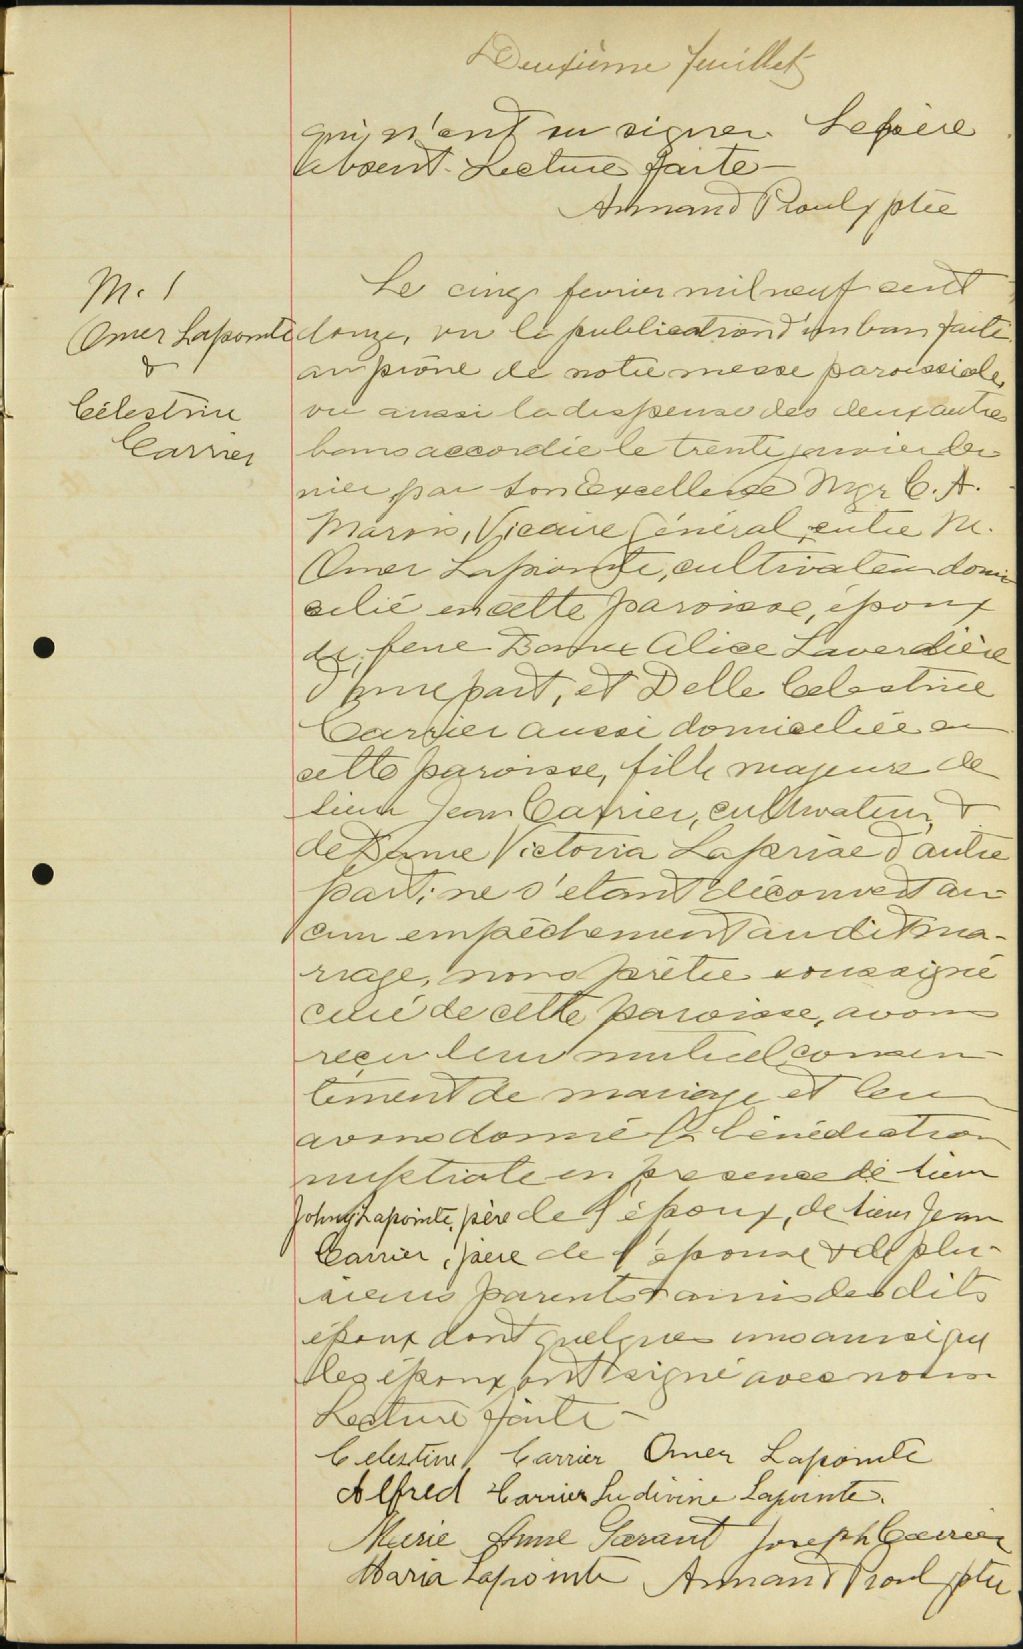 Deuxième feuillet
qui n'ont su signer. Le père
absent. Lecture faite—
Armand Proulx ptre
M. 1
Omer Lapointe
&
Célestine
Carrier
Le cinq fevrier mil neuf cent
douze, vu la publication d'un ban faite
au prône de notre messe paroissiale,
vu aussi la dispense des deux autres
bans accordée le trente janvier der
nier par son Excellence Mgr C. A.
Marois, Vicaire Général, entre M.
Omer Lapointe, cultivateur domi
cilié en cette paroisse, époux
de feue Dame Alice Laverdière
d'une part, et Delle Celestine
Carrier aussi domiciliée en
cette paroisse, fille majeure de
sieur Jean Carrier, cultivateur, &
de Dame Victoria Laprise d'autre
part; ne s'étant découvert au-
cun empêchement au dit ma-
riage, nous prêtre soussigné
curé de cette paroisse, avons
reçu leur mutuel consen-
tement de mariage et leur
avons donné la bénédiction
nuptiale en presence de sieur
Johny Lapointe, père de l'époux, de sieur Jean
Carrier, père de l'épouse & de plu-
sieurs parents & amis des dits
époux dont quelques uns ainsi que
les époux ont signé avec nous.
Lecture faite—
Celestine Carrier Omer Lapointe
Alfred Carrier Ludivine Lapointe.
Marie Anne Garant Joseph Carrier
Maria Lapointe Armand Proulx ptre